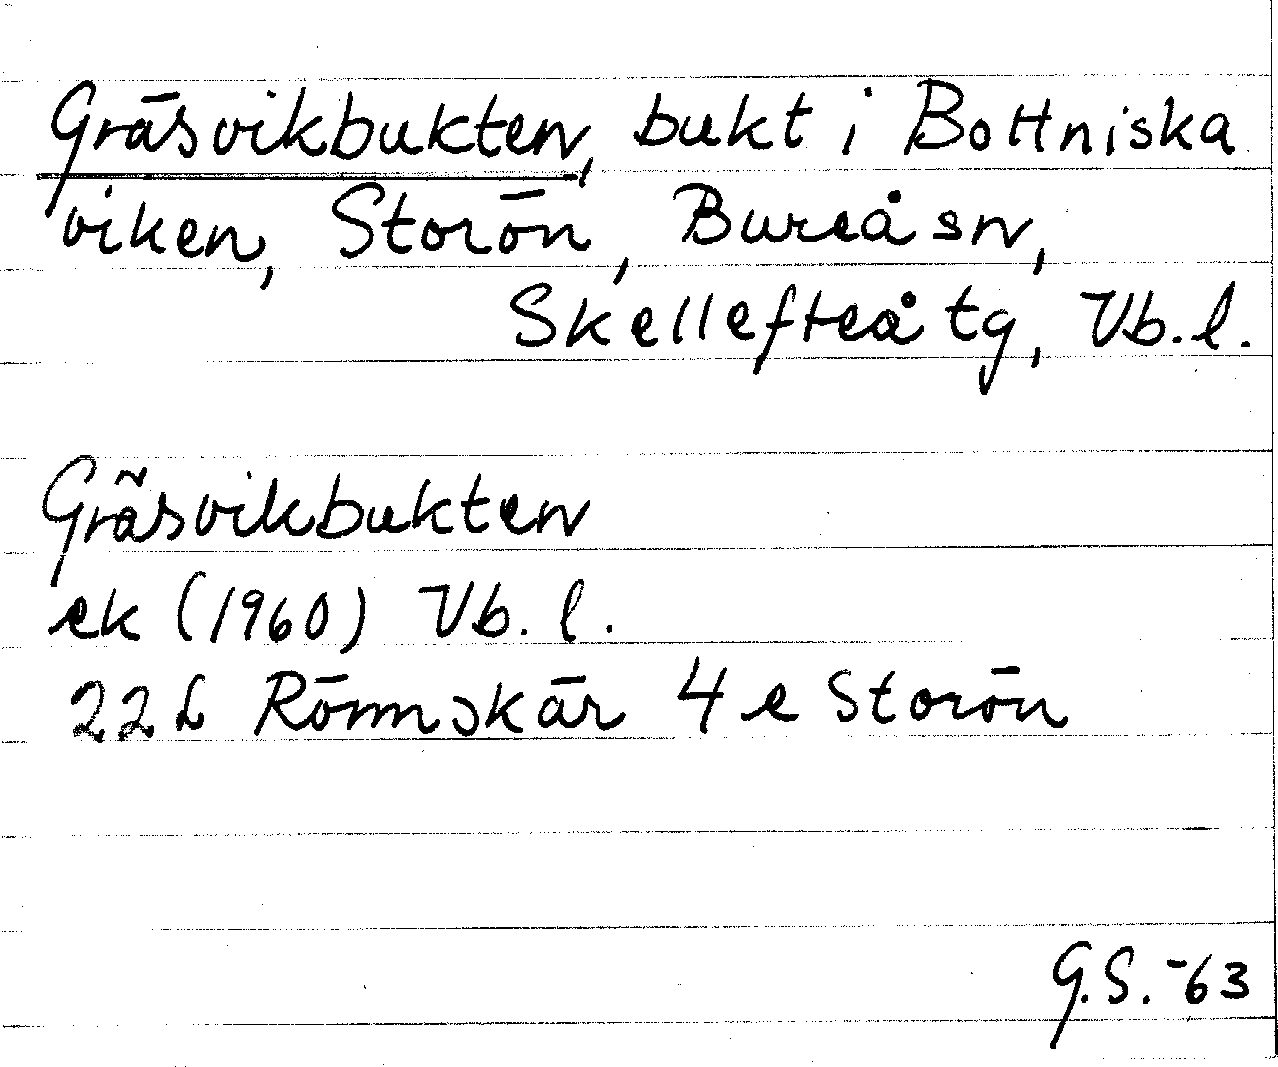 Gräsvikbukten, bukt i Bottniska
viken, Storön, Bureå sn,
Skellefteå tg, Vb. l.
Gräsvikbukten
ek (1960) Vb. l.
22L Rönnskär 4e Storön
G.S. -63